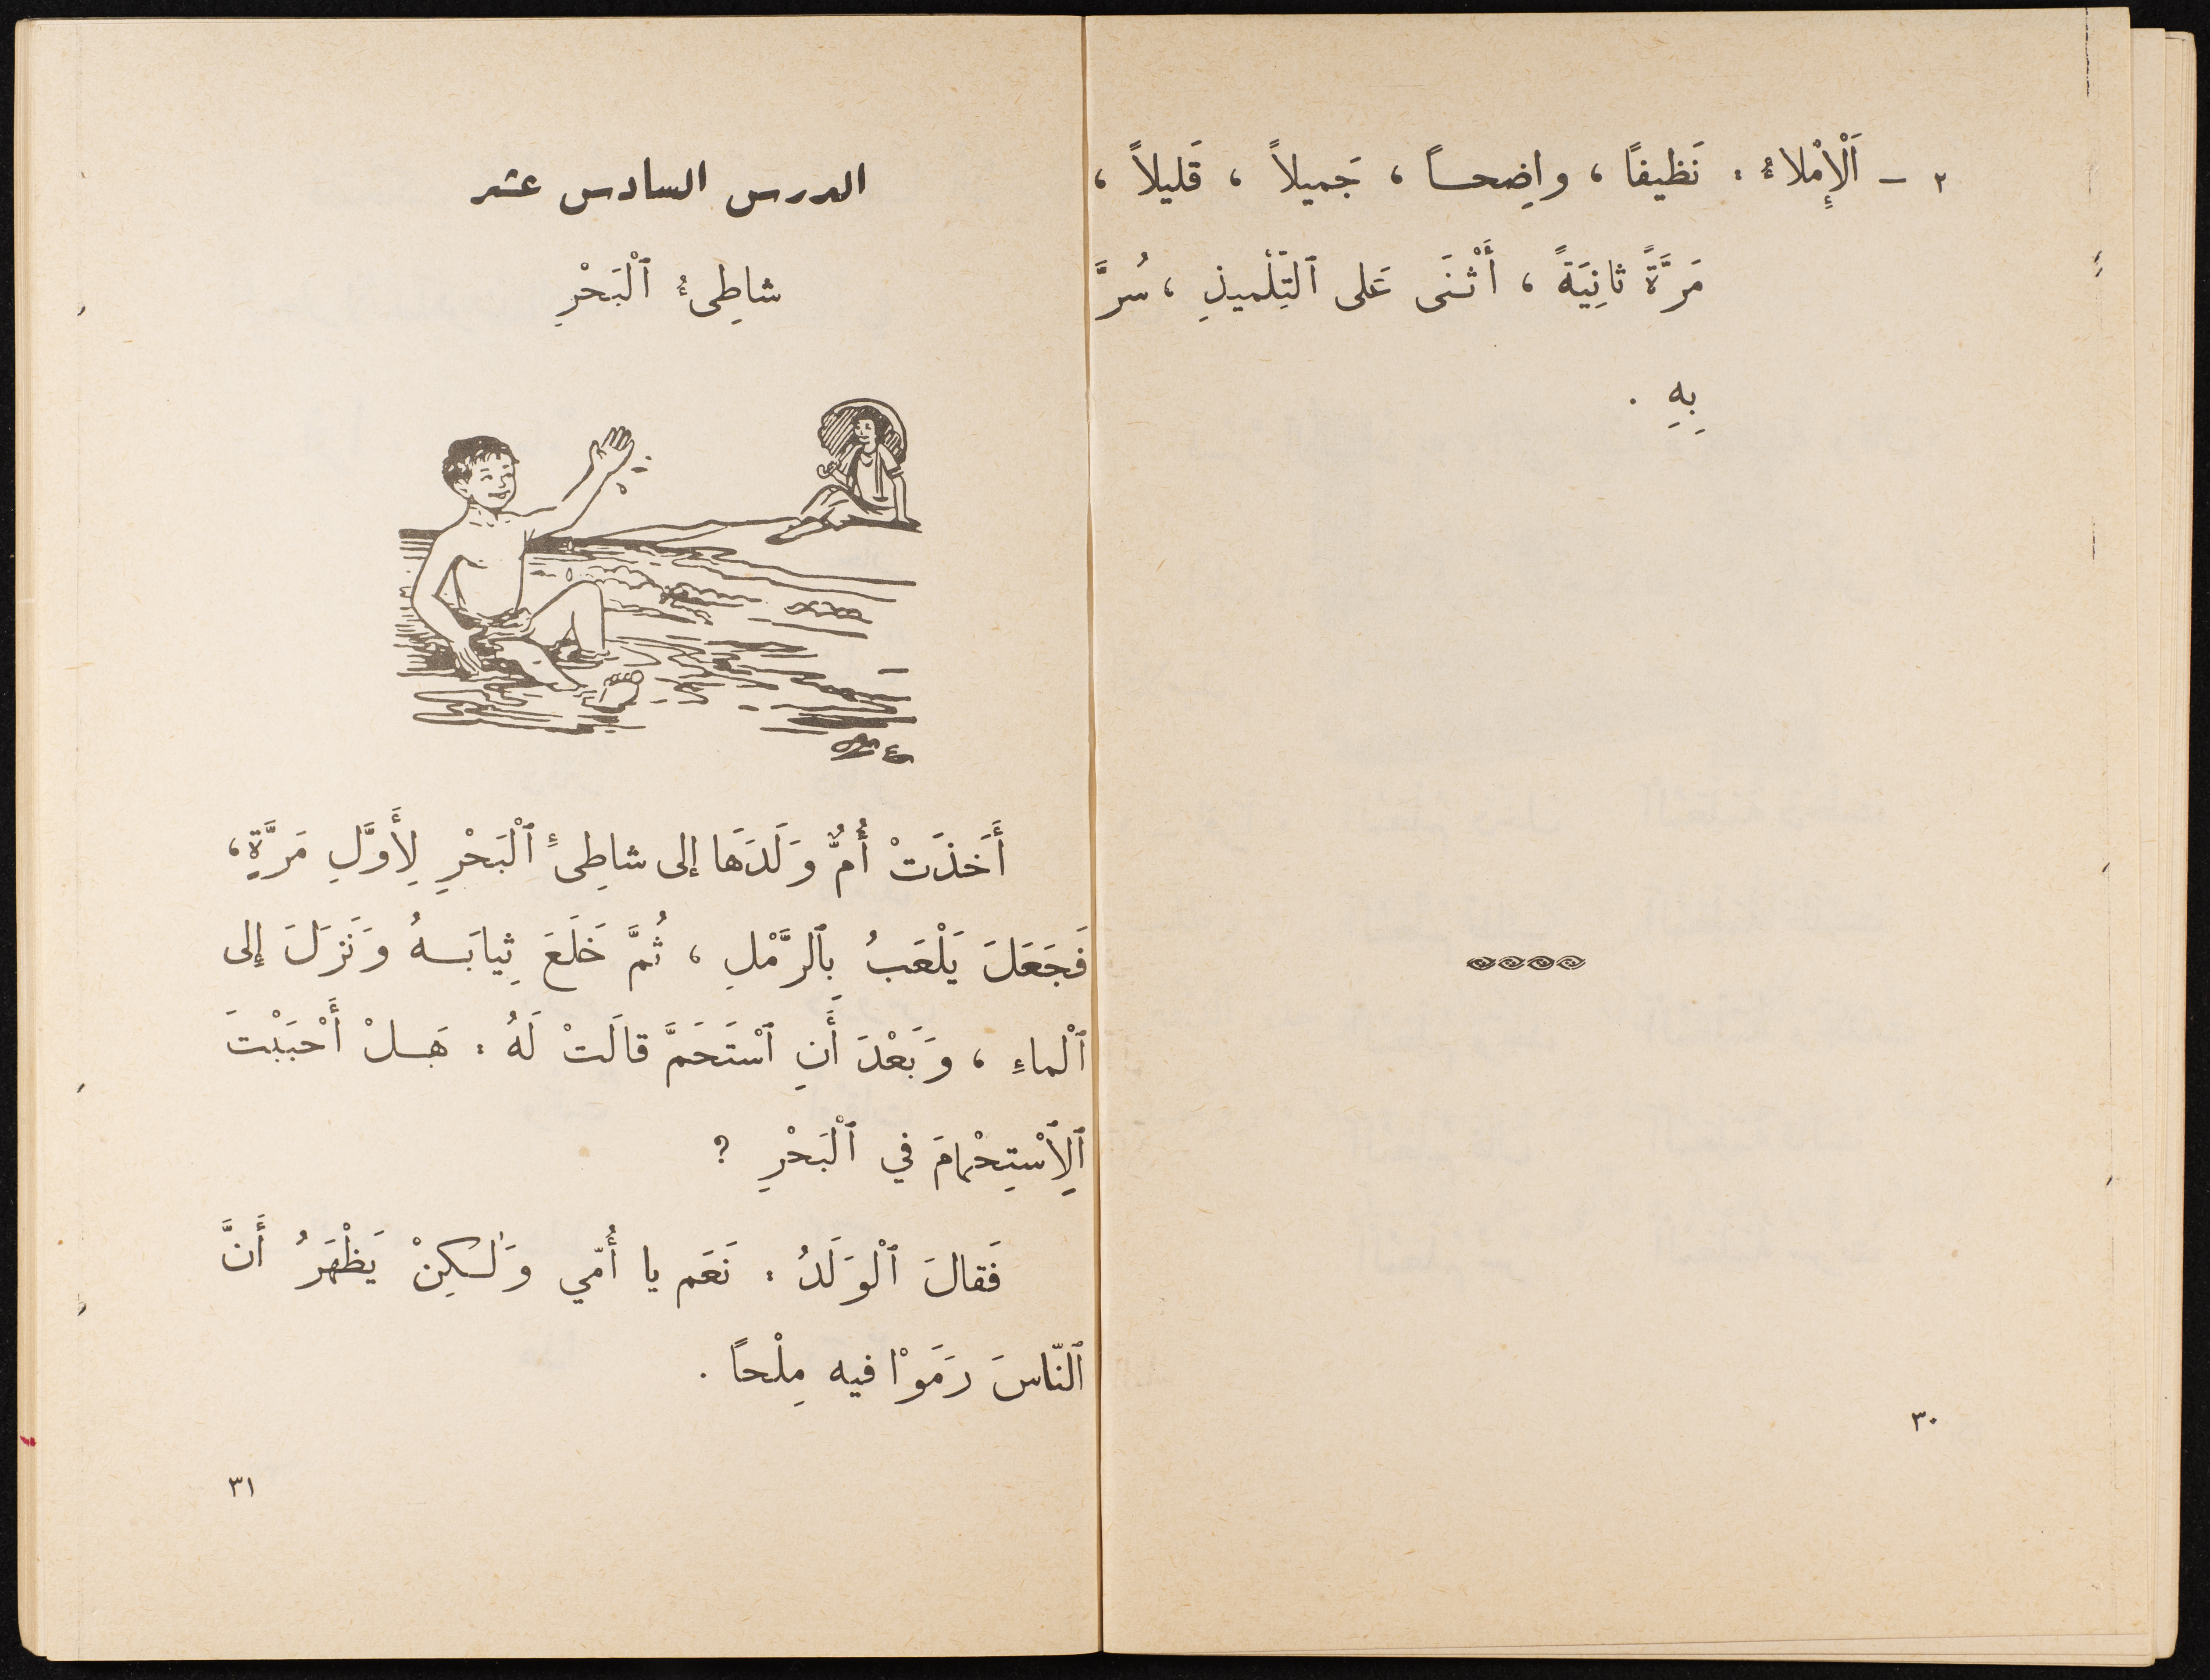 ٢ – اَلْإِمْلاءُ : نَظيفًا ، واضِحــاً ، جَميلاً ، قَليلاً ،
مَرَّةً ثانِيَةً ، أَثْنَى عَلى ٱلتِّلْميذِ ، سُرَّ
بِهِ .
٣٠
الدرس السادس عشر
شاطِىءُ ٱلْبَحْرِ
أَخَذَتْ أُمٌّ وَلَدَهَا إلى شاطِىءِ ٱلْبَحْرِ لِأَوَّلِ مَرَّةٍ ،
فَجَعَلَ يَلْعَبُ بِٱلرَّمْلِ ، ثُمَّ خَلَعَ ثِيابَــهُ وَنَزَلَ إلى
ٱلْماءِ ، وَبَعْدَ أَنِ ٱسْتَحَمَّ قالَتْ لَهُ : هَــلْ أَحْبَبْتَ
ٱلِٱسْتِحْمامَ في ٱلْبَحْرِ ؟
فَقالَ ٱلْوَلَدُ : نَعَم يا أُمّي وَلٰــكِنْ يَظْهَرُ أَنَّ
ٱلنّاسَ رَمَوْا فيه مِلْحاً .
٣١